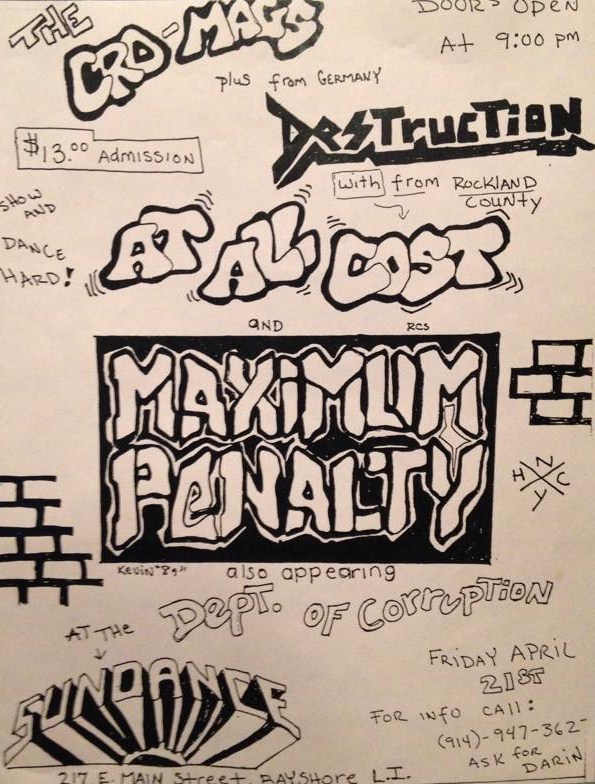 THE
CRO-MAGS
DOORS OPEN
At 9:00 pm
plus from GERMANY
DESTRUCTION
$13.00 ADMISSION
with from ROCKLAND
COUNTY
SHOW
AND
DANCE
HARD!
AT ALL COST
AND
RCS
MAXiMUM
PeNALTY
NYHC
Kevin "89"
also appearing
DepT. OF CorrupTiON
AT THE
SUNDANCE
FRIDAY APRIL
21ST
FOR INFO CALL:
(914)-947-362-
ASK for
DARIN
217 E. MAIN Street, BAYSHORE L.I.